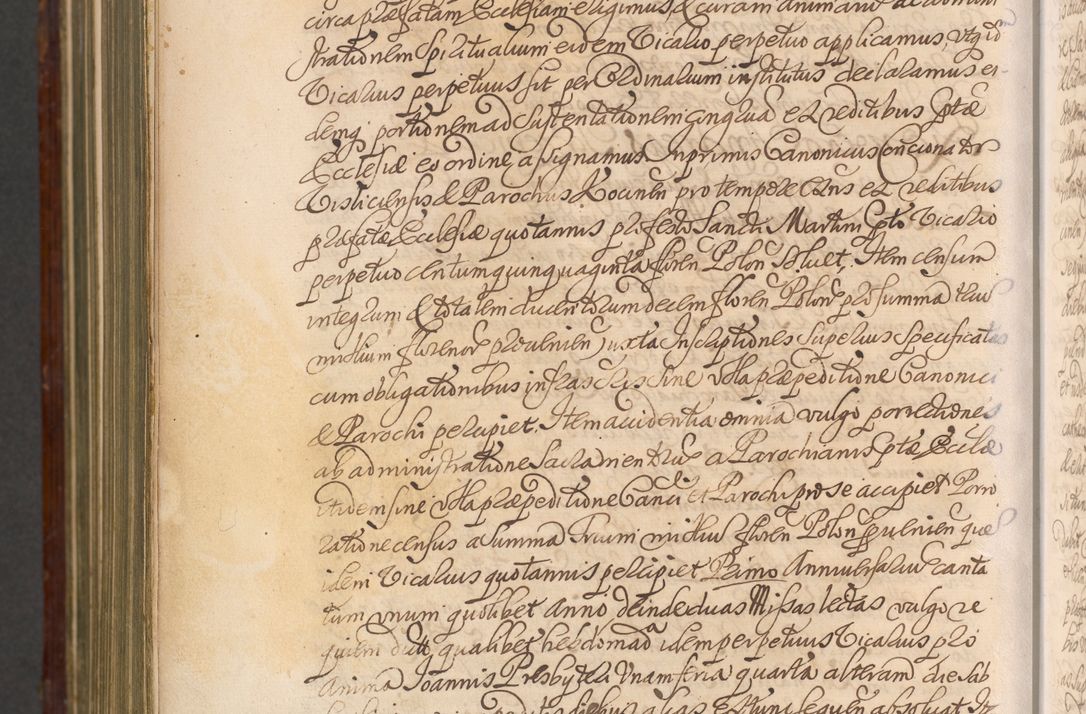 circa præfatam Ecclesiam eligimus & curam animarũ ac admini
strationem spiritualium eidem Vicario perpetuo applicamus, utq; id
Vicarius perpetuus sit per Ordinarium institutus declaramus ei
demq; portionem ad sustentationem congruã ex reditibus Eptæ
Ecclesiæ eo ordine assignamus. Inprimis Canonicus Concionator
Visliciensis & Parochus Kocinen pro tempore exñs ex reditibus
præfatæ Ecclesiæ quotannis pro festo Sancti Martini Epto Vicario
perpetuo centum quinquaginta floren Polon solvet, Item censum
integrum & totalem ducentorum decem floren Polon pro summa triũ
millium florenor provenien juxta Inscriptiones superius specificatas
cum obligationibus infrascriis sine ulla præpeditione Canonici
& Parochi percipiet. Item accidentia omnia vulgo porrectiones
ab administratione Sacramentorũ a Parochianis Eptæ Ecclæ
itidem sine ulla præpeditione Canci et Parochi pro se accipiet Porro
ratione census a summa Trium milliũ floren Polon provenien que
idem Vicarius quotannis percipiet Primo Anniversariũ canta
tum unum quolibet Anno deinde duas Missas lectas vulgo re
quiem dictas qualibet hebdomada idem perpetuus Vicarius pro
anima Joannis Presbyteri unam feria quarta alteram die Sab
alias absolvat